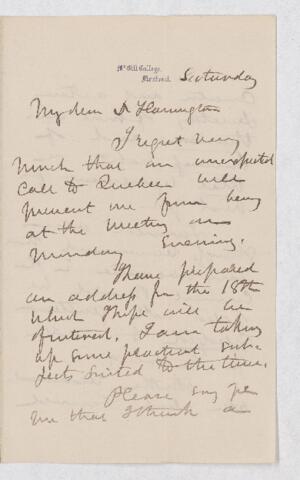 McGill College,
Montreal.
Saturday
My dear Dr Harrington
I regret very
much that an unexpected
call to Quebec will
prevent me from being
at the meeting on
Monday Evening.
I have prepared
an address for the 18th
which I hope will be
of interest. I am taking
up some practical sub-
jects suited to the time.
Please say for
me that I think a